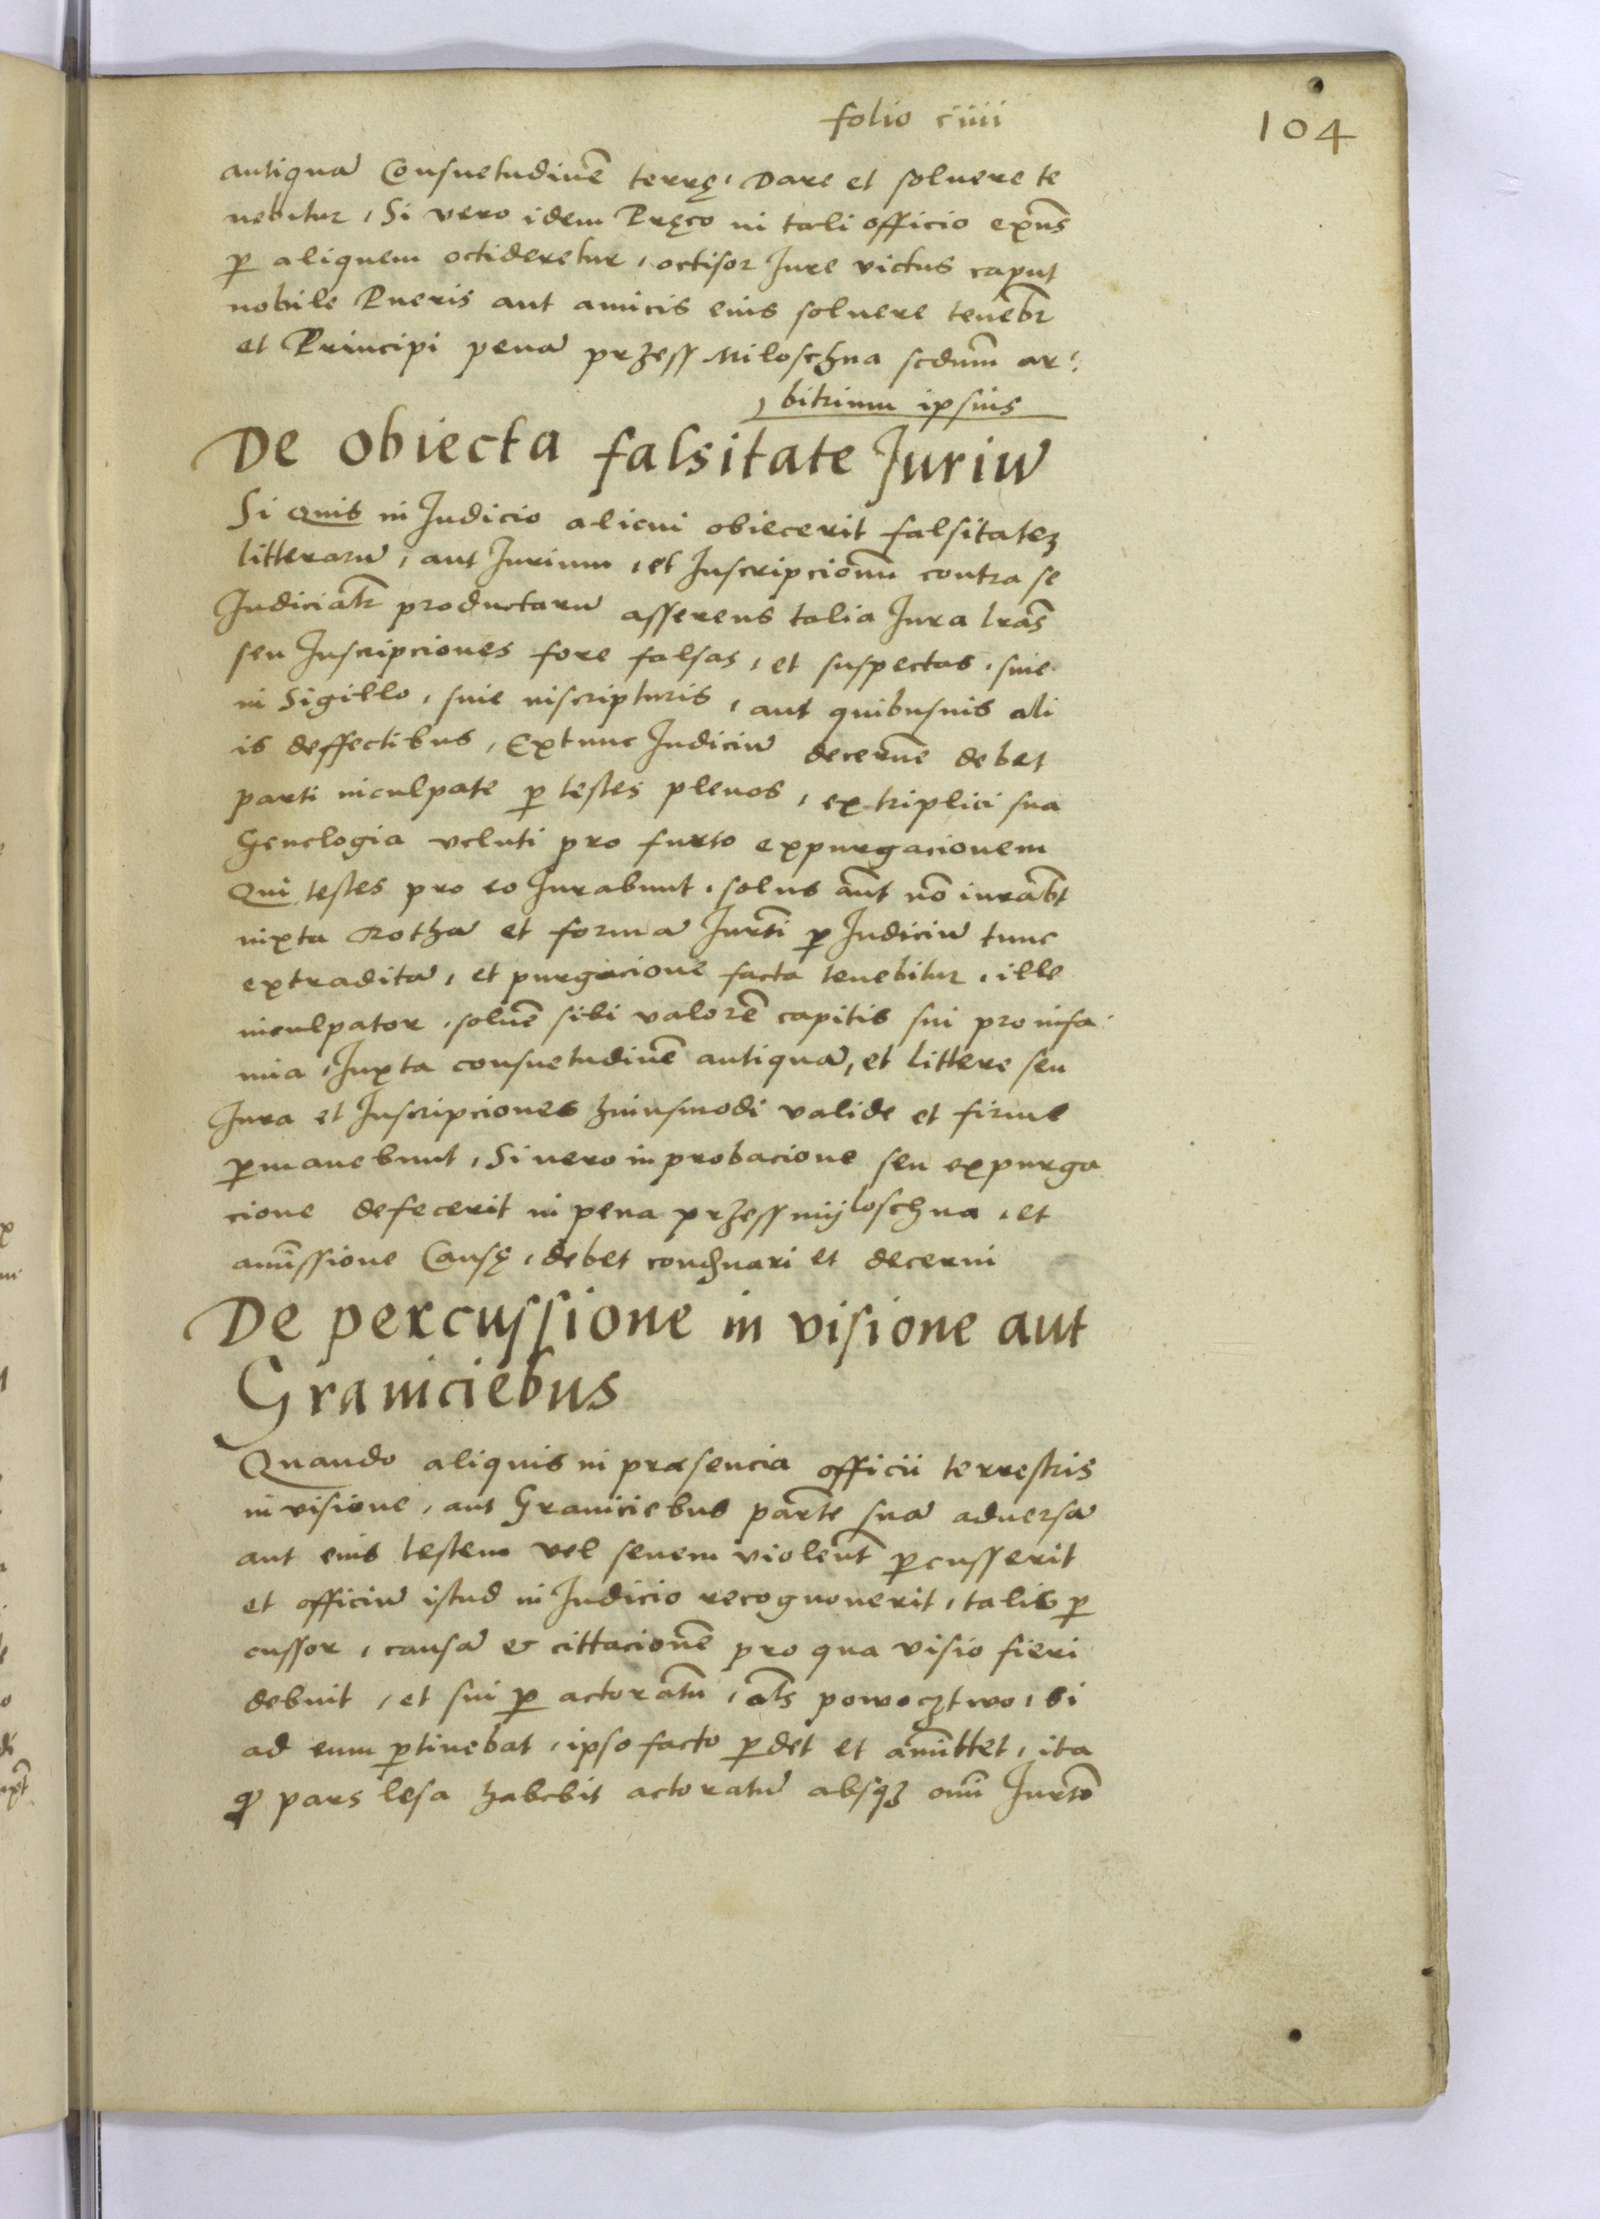 folio ciiii
104
antiquā Consuetudinē terrę, Dare et soluere te
nebitur, Si vero idem Pręco in tali officio exn̄s
ꝑ aliquem occideretur, occisor Jure victus caput
nobile Pueris aut amicis eius soluere tenebr̄
et Principi penā przess Miloschna scdum̄ ar
bitrium ipsius
De obiecta falsitate Juriū
Si quis in Judicio alicui obiecerit falsitateʒ
litterarū, aut Jurium, et Inscripcionū contra se
Judicialr̄ productarū asserens talia Jura lrās
seu Inscripciones fore falsas, et suspectas, siue
in Sigillo, siue inscripturis, aut quibusuis ali
is deffectibus, Extunc Judiciū decernē debet
parti inculpate ꝑ testes plenos, ex triplici sua
Genelogia veluti pro furto expurgacionem
Qui testes pro eo Jurabunt, solus aūt nō iurabt̄
iuxta Rothā et formā Jurt̄i ꝑ Judiciū tunc
extraditā, et purgacione facta tenebitur, ille
inculpator, soluē sibi valorē capitis sui pro infa
mia, Juxta consuetudinē antiquā, et littere seu
Jura et Inscripciones huiusmodi valide et firme
ꝑmanebunt, Si uero in probacione seu expurga
cione defecerit in pena przessmijloschna, et
amissione Causę, debet condēnari et decerni
De percussione in visione aut
Graniciebus
Quando aliquis in præsencia officii terrestris
in visione, aut Graniciebus partē suā aduersā
aut eius testem vel senem violent̄ ꝑcusserit
et officiū istud in Judicio recognouerit, talis ꝑ
cussor, causā & cittacionē pro qua visio fieri
debuit, et sui ꝑ actoratū, als̄ powocztwo, si
ad eum ꝑtinebat, ipso facto ꝑdet et amittet, ita
ꝙ pars lesa habebit actoratū absqʒ omi̅ Jurt̄o